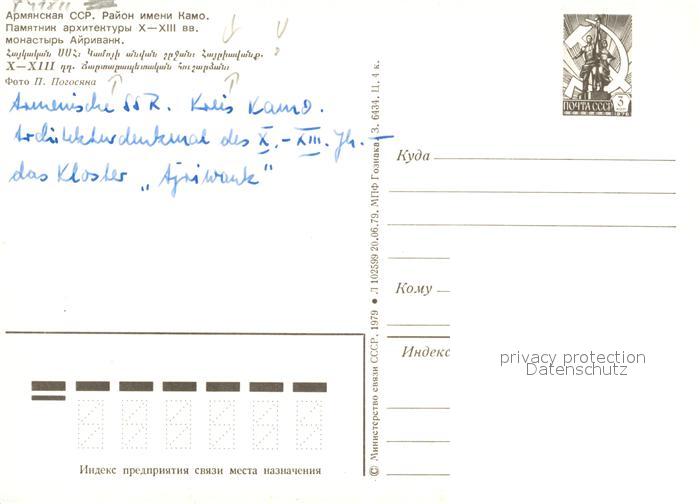 Армянская ССР. Район имени Камо.
Памятник архитектуры X—XIII вв.
монастырь Айриванк.
Հայկական ՍՍՀ։ Կամոյի անվան շրջան։ Հայրիավանք.
X—XIII դդ. Ճարտարապետական հուշարձան։
Фото П. Погосяна
Armenische SSR. Kreis Kamo.
Architekturdenkmal des X.-XIII. Jh. -
das Kloster „Ajriwank“
ПОЧТА СССР 3 КОП
1976
Куда
Кому
Индекс
privacy protection
Datenschutz
Индекс предприятия связи места назначения
© Министерство связи СССР, 1979 • Л 102599 20.06.79. МПФ Гознака. З. 6434. Ц. 4 к.